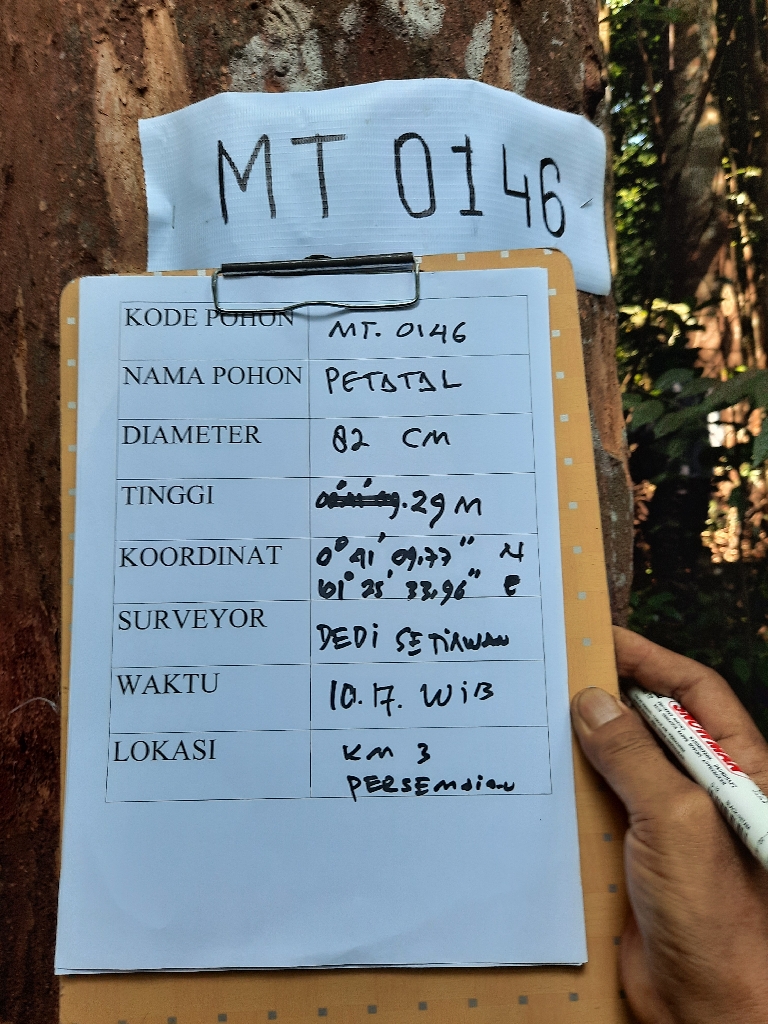 MT 0146
KODE POHON MT. 0146
NAMA POHON PETATAL
DIAMETER 82 CM
TINGGI .29 M
KOORDINAT 0° 41' 09.77" N
25' 33.96" E
SURVEYOR DEDI SETIAWAN
WAKTU 10.17. WIB
LOKASI KM 3
PERSEMAIAN
SNOWMAN